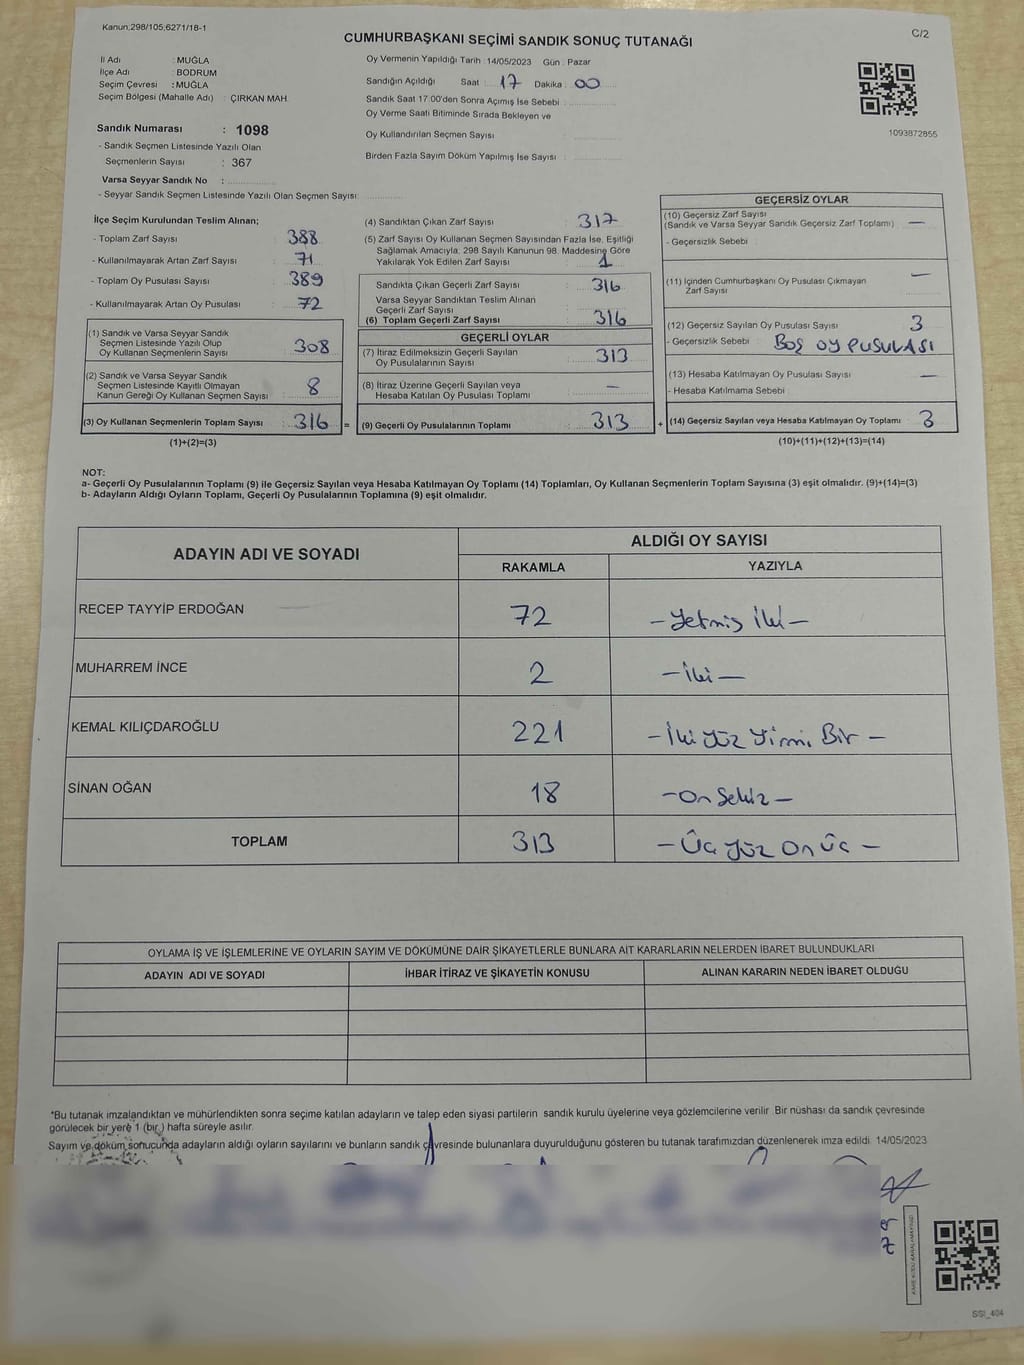 Kanun:298/105;6271/18-1
C/2
CUMHURBAŞKANI SEÇİMİ SANDIK SONUÇ TUTANAĞI
İl Adı : MUĞLA
İlçe Adı : BODRUM
Seçim Çevresi : MUĞLA
Seçim Bölgesi (Mahalle Adı) : ÇIRKAN MAH.
Oy Vermenin Yapıldığı Tarih :14/05/2023 Gün : Pazar
Sandığın Açıldığı Saat : 17 Dakika : 00
Sandık Saat 17:00'den Sonra Açımış İse Sebebi :
Oy Verme Saati Bitiminde Sırada Bekleyen ve
Oy Kullandırılan Seçmen Sayısı :
Birden Fazla Sayım Döküm Yapılmış İse Sayısı :
1093872855
Sandık Numarası : 1098
- Sandık Seçmen Listesinde Yazılı Olan
Seçmenlerin Sayısı : 367
Varsa Seyyar Sandık No :
- Seyyar Sandık Seçmen Listesinde Yazılı Olan Seçmen Sayısı:
İlçe Seçim Kurulundan Teslim Alınan;
- Toplam Zarf Sayısı : 388
- Kullanılmayarak Artan Zarf Sayısı : 71
- Toplam Oy Pusulası Sayısı : 389
- Kullanılmayarak Artan Oy Pusulası : 72
(1) Sandık ve Varsa Seyyar Sandık
Seçmen Listesinde Yazılı Olup
Oy Kullanan Seçmenlerin Sayısı : 308
(2) Sandık ve Varsa Seyyar Sandık
Seçmen Listesinde Kayıtlı Olmayan
Kanun Gereği Oy Kullanan Seçmen Sayısı : 8
(3) Oy Kullanan Seçmenlerin Toplam Sayısı : 316 =
(1)+(2)=(3)
(4) Sandıktan Çıkan Zarf Sayısı : 317
(5) Zarf Sayısı Oy Kullanan Seçmen Sayısından Fazla İse, Eşitliği
Sağlamak Amacıyla; 298 Sayılı Kanunun 98. Maddesine Göre
Yakılarak Yok Edilen Zarf Sayısı : 1
Sandıkta Çıkan Geçerli Zarf Sayısı : 316
Varsa Seyyar Sandıktan Teslim Alınan
Geçerli Zarf Sayısı :
(6) Toplam Geçerli Zarf Sayısı : 316
GEÇERLİ OYLAR
(7) İtiraz Edilmeksizin Geçerli Sayılan
Oy Pusulalarının Sayısı : 313
(8) İtiraz Üzerine Geçerli Sayılan veya
Hesaba Katılan Oy Pusulası Toplamı : —
(9) Geçerli Oy Pusulalarının Toplamı : 313 +
GEÇERSİZ OYLAR
(10) Geçersiz Zarf Sayısı
(Sandık ve Varsa Seyyar Sandık Geçersiz Zarf Toplamı) : —
- Geçersizlik Sebebi :
(11) İçinden Cumhurbaşkanı Oy Pusulası Çıkmayan
Zarf Sayısı : —
(12) Geçersiz Sayılan Oy Pusulası Sayısı : 3
- Geçersizlik Sebebi : BOŞ OY PUSULASI
(13) Hesaba Katılmayan Oy Pusulası Sayısı : —
- Hesaba Katılmama Sebebi :
(14) Geçersiz Sayılan veya Hesaba Katılmayan Oy Toplamı : 3
(10)+(11)+(12)+(13)=(14)
NOT:
a- Geçerli Oy Pusulalarının Toplamı (9) ile Geçersiz Sayılan veya Hesaba Katılmayan Oy Toplamı (14) Toplamları, Oy Kullanan Seçmenlerin Toplam Sayısına (3) eşit olmalıdır. (9)+(14)=(3)
b- Adayların Aldığı Oyların Toplamı, Geçerli Oy Pusulalarının Toplamına (9) eşit olmalıdır.
ADAYIN ADI VE SOYADI ALDIĞI OY SAYISI
RAKAMLA YAZIYLA
RECEP TAYYİP ERDOĞAN 72 -Yetmiş İki-
MUHARREM İNCE 2 -İki-
KEMAL KILIÇDAROĞLU 221 -İki Yüz Yirmi Bir-
SİNAN OĞAN 18 -On Sekiz-
TOPLAM 313 -Üç Yüz On Üç-
OYLAMA İŞ VE İŞLEMLERİNE VE OYLARIN SAYIM VE DÖKÜMÜNE DAİR ŞİKAYETLERLE BUNLARA AİT KARARLARIN NELERDEN İBARET BULUNDUKLARI
ADAYIN ADI VE SOYADI İHBAR İTİRAZ VE ŞİKAYETİN KONUSU ALINAN KARARIN NEDEN İBARET OLDUĞU
*Bu tutanak imzalandıktan ve mühürlendikten sonra seçime katılan adayların ve talep eden siyasi partilerin sandık kurulu üyelerine veya gözlemcilerine verilir. Bir nüshası da sandık çevresinde
görülecek bir yere 1 (bir) hafta süreyle asılır.
Sayım ve döküm sonucunda adayların aldığı oyların sayılarını ve bunların sandık çevresinde bulunanlara duyurulduğunu gösteren bu tutanak tarafımızdan düzenlenerek imza edildi. 14/05/2023
SSI_404